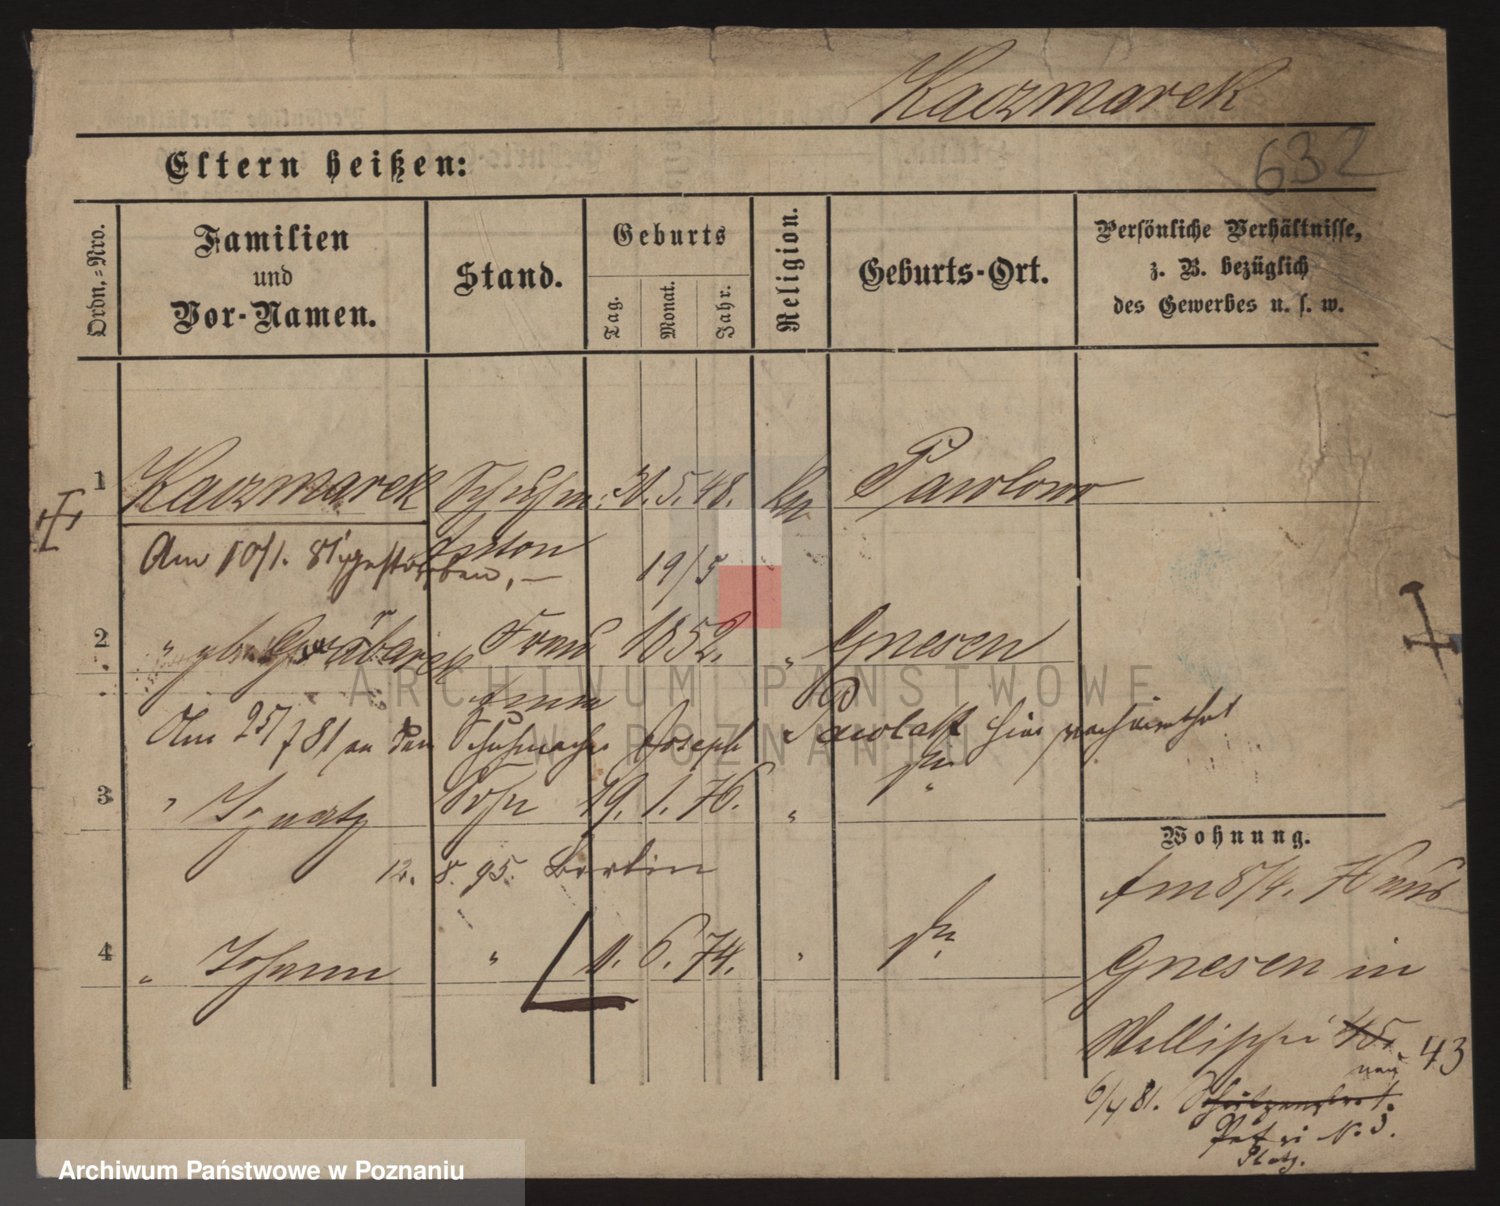 Kaczmarek
632
Eltern heißen:
Ordn.-Nro.
Familien und Vor-Namen.
Stand.
Geburts
Tag. Monat. Jahr.
Religion.
Geburts-Ort.
Persönliche Verhältnisse,
z. B. bezüglich
des Gewerbes u. s. w.
1 Kaczmarek Schuhm. 31. 5. 48. Pawlowo
Anton
Am 10/1. 81 gestorben, — 19/5
2 " geb. Frau 1852. " Gnesen
Anna
Am 25/7 81 an den Schuhmacher Joseph Pawlak hier verheirathet
3 " Ignatz Sohn 19. 1. 76. " "
12. 8. 95. Berlin
4 " Johann " 11. 6. 74. "
Wohnung.
Am 5/4. 76 aus
Gnesen in
Wallischei 45. 43
neu
6/4 81.
Petri N. 5.
Platz.
ARCHIWUM PAŃSTWOWE
W POZNANIU
Archiwum Państwowe w Poznaniu